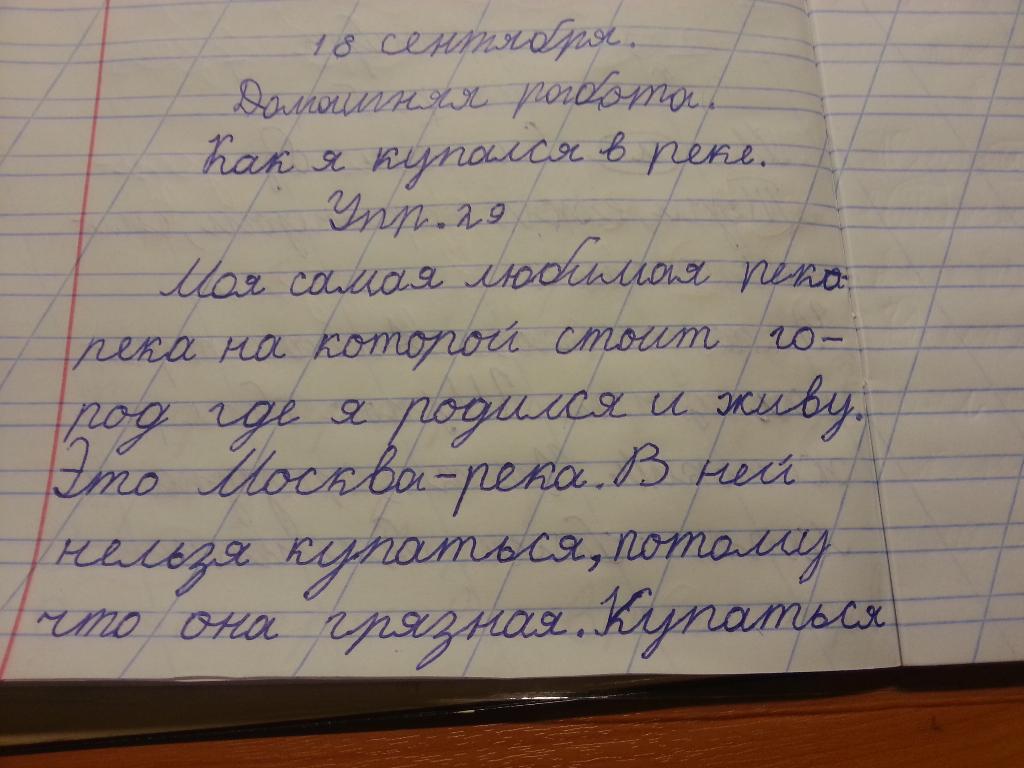 18 сентября.
Домашняя работа.
Как я купался в реке.
Упр. 29
Моя самая любимая река-
река на которой стоит го-
род где я родился и живу.
Это Москва-река. В ней
нельзя купаться, потому
что она грязная. Купаться